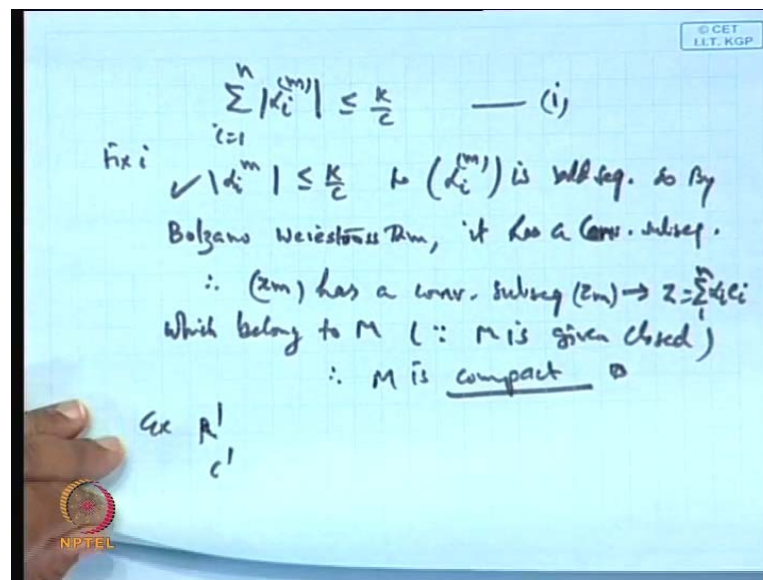 © CET
I.I.T. KGP
n
∑ |α_i^(m)| ≤ K/C — (i)
i=1
Fix i
✓ |α_i^m| ≤ K/C so (α_i^(m)) is bdd seq. so By
Bolzano Weierstrass Thm, it has a Conv. subseq.
∴ (xm) has a conv. subseq (zm) → z = ∑_1^n α_i e_i
which belong to M (∵ M is given closed)
∴ M is compact
Ex R'
C'
NPTEL